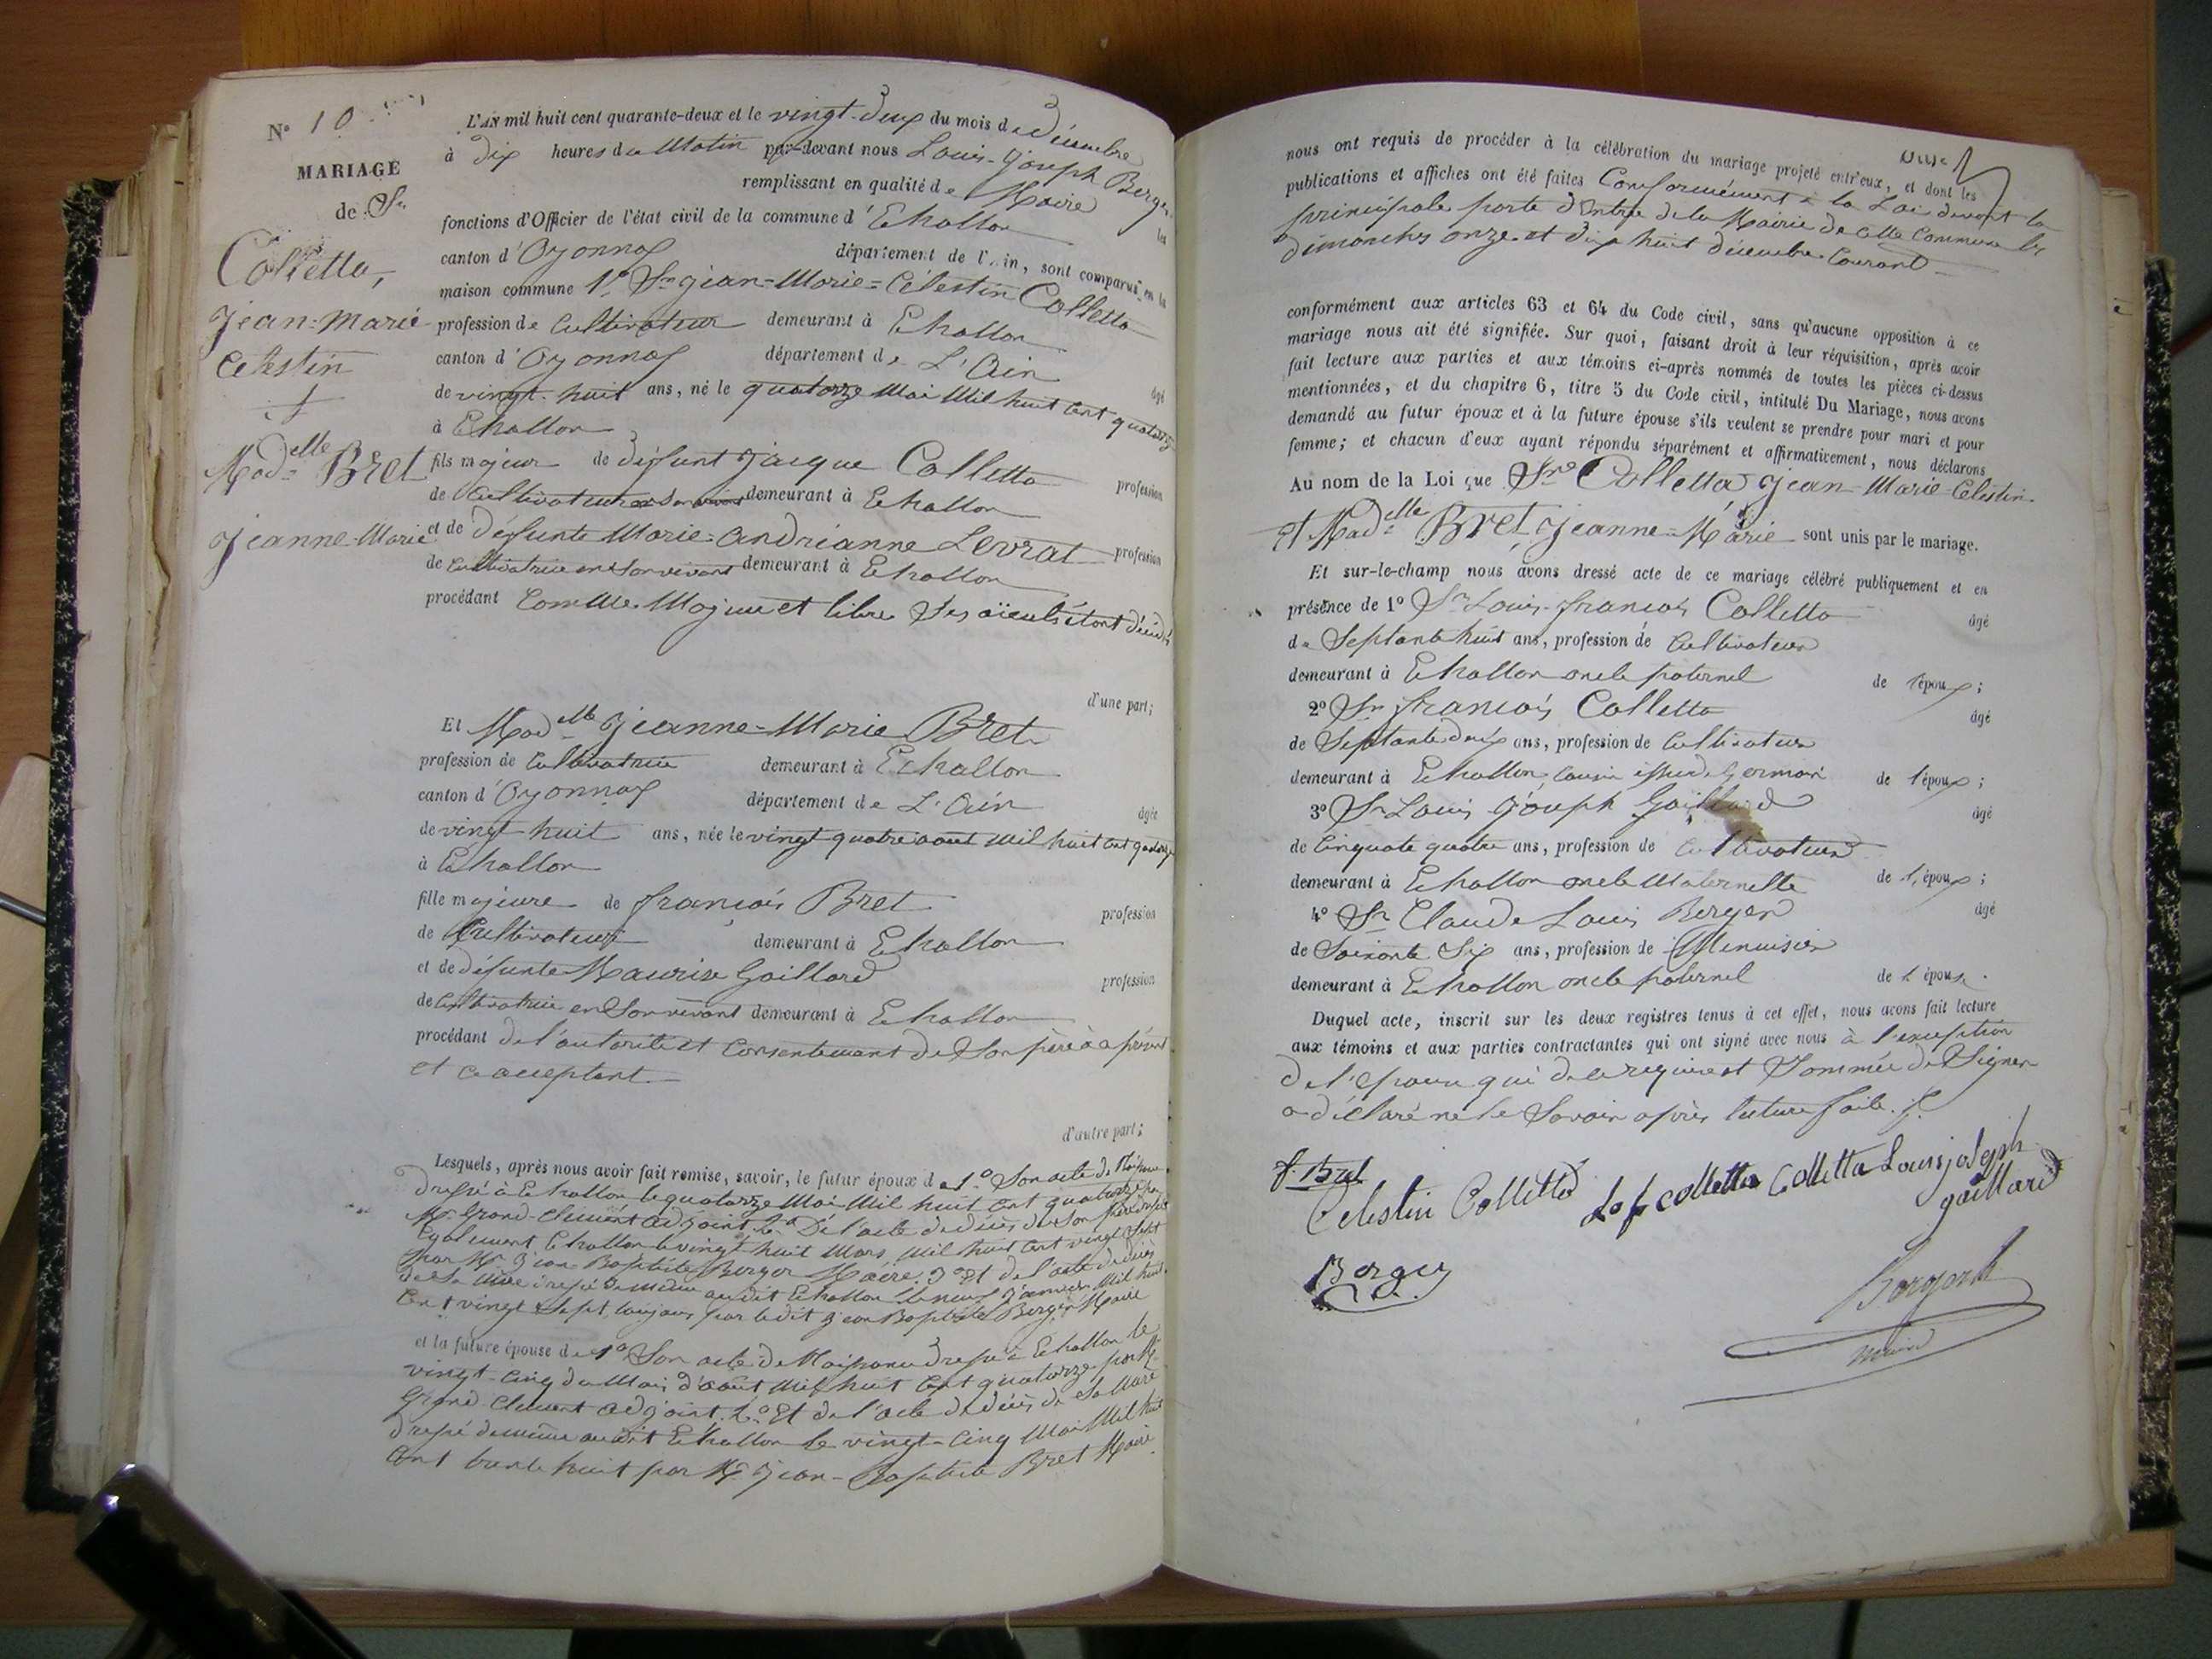 N° 10
MARIAGE
de Sr
Colletta,
Jean-Marie
Celestin
+
Mad.elle Bret
Jeanne-Marie
L'AN mil huit cent quarante-deux et le vingt-deux du mois de Décembre
à dix heures du Matin par-devant nous Louis-Joseph Berger
remplissant en qualité de Maire les
fonctions d'Officier de l'état civil de la commune d'Echallon
canton d'Oyonnax département de l'Ain, sont comparus en la
maison commune 1° Sr Jean-Marie-Célestin Colletta
profession de Cultivateur demeurant à Echallon
canton d'Oyonnax département de L'Ain âgé
de vingt-huit ans, né le quatorze Mai Mil huit Cent quatorze
à Echallon
fils majeur de défunt Jacque Colletta profession
de Cultivateur en Son vivant demeurant à Echallon
et de défunte Marie-Andrianne Levrat profession
de Cultivatrice en Son vivant demeurant à Echallon
procédant Comme Majeur et libre Ses aïeuls étant décédés
d'une part;
Et Mad.elle Jeanne-Marie Bret
profession de Cultivatrice demeurant à Echallon
canton d'Oyonnax département de L'Ain âgée
de vingt-huit ans, née le vingt quatre août Mil huit Cent quatorze
à Echallon
fille majeure de françois Bret profession
de Cultivateur demeurant à Echallon
et de défunte Maurise Gaillard profession
de Cultivatrice en Son vivant demeurant à Echallon
procédant de l'autorité et Consentement de Son père à a présent
et ce acceptant
d'autre part;
Lesquels, après nous avoir fait remise, savoir, le futur époux de 1° Son acte de Naissance
dressé à Echallon le quatorze Mai Mil huit Cent quatorze par
Mr Grand-Clément adjoint, 2° De l'acte de décès de Son père dressé
Egalement Echallon le vingt-huit Mars Mil huit Cent vingt Sept
par Mr Jean Baptiste Berger Maire. 3° Et de l'acte de décès
de Sa Mère dressé de même audit Echallon le neuf Janvier Mil huit
Cent vingt Sept toujours par ledit Jean Baptiste Berger Maire
et la future épouse de 1° Son acte de Naissance dressé à Echallon le
vingt-Cinq du Mois d'août Mil huit Cent quatorze par Mr
Grand Clément adjoint. 2° Et de l'acte de décès de Sa Mère
dressé de même audit Echallon le vingt-Cinq Mai Mil huit
Cent trente huit par Mr Jean-Baptiste Bret Maire
nous ont requis de procéder à la célébration du mariage projeté entr'eux, et dont les
publications et affiches ont été faites Conformément à la Loi devant la
principale porte d'Entrée de la Mairie de cette Commune les
dimanches onze et dix huit décembre Courant
conformément aux articles 63 et 64 du Code civil, sans qu'aucune opposition à ce
mariage nous ait été signifiée. Sur quoi, faisant droit à leur réquisition, après avoir
fait lecture aux parties et aux témoins ci-après nommés de toutes les pièces ci-dessus
mentionnées, et du chapitre 6, titre 5 du Code civil, intitulé Du Mariage, nous avons
demandé au futur époux et à la future épouse s'ils veulent se prendre pour mari et pour
femme; et chacun d'eux ayant répondu séparément et affirmativement, nous déclarons
Au nom de la Loi que Sr Colletta Jean-Marie-Celestin
Et Mad.elle Bret, Jeanne-Marie sont unis par le mariage.
Et sur-le-champ nous avons dressé acte de ce mariage célébré publiquement et en
présence de 1° Sr Louis-françois Colletta âgé
de Septante huit ans, profession de Cultivateur
demeurant à Echallon oncle paternel de l'époux;
2° Sr françois Colletta âgé
de Septante deux ans, profession de Cultivateur
demeurant à Echallon, Cousin issu de Germain de l'époux;
3° Sr Louis Joseph Gaillard âgé
de Cinquate quatre ans, profession de Cultivateur
demeurant à Echallon oncle Maternelle de l'épouse;
4° Sr Claude Louis Berger âgé
de Soixante Six ans, profession de Menuisier
demeurant à Echallon oncle paternel de l'épouse.
Duquel acte, inscrit sur les deux registres tenus à cet effet, nous avons fait lecture
aux témoins et aux parties contractantes qui ont signé avec nous à l'exception
de l'épouse qui de ce requise et Sommée de Signer
a déclaré ne le Savoir après lecture faite.
f. Bret
Celestin Colletta L. f. colletta Colletta Louis joseph
gaillard
Berger
Berger
maire